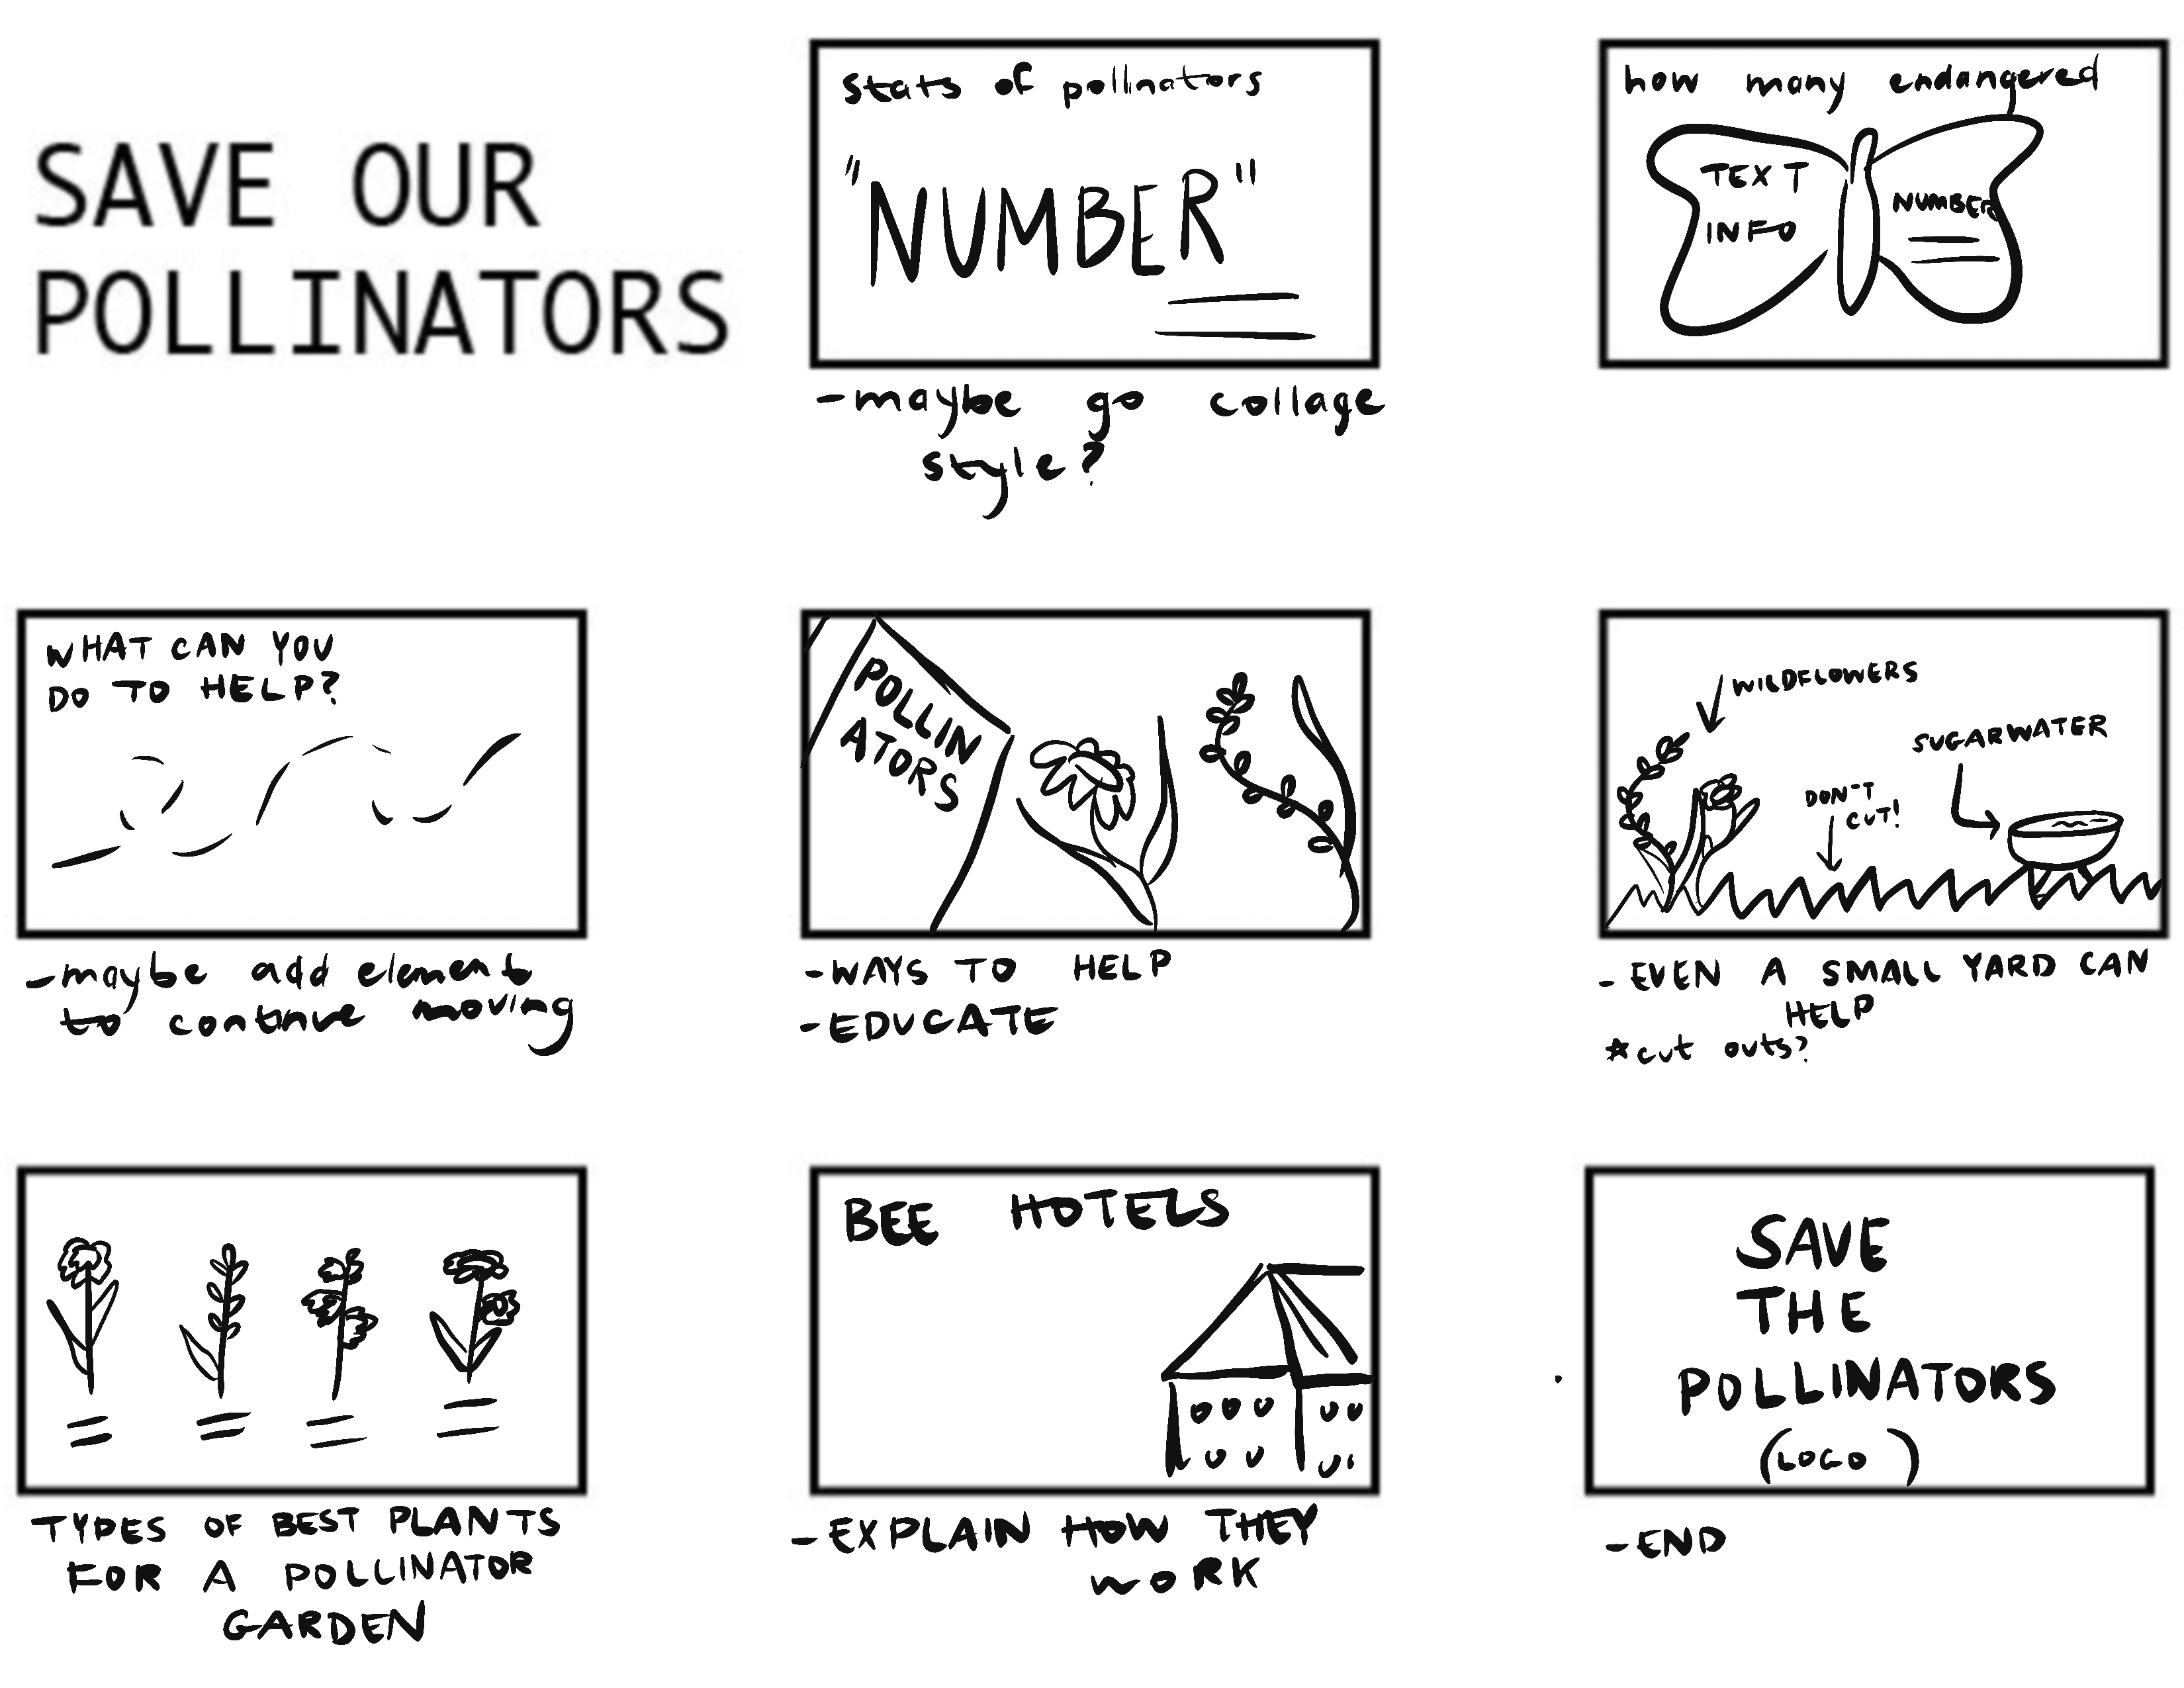 SAVE OUR
POLLINATORS
stats of pollinators
"NUMBER"
-maybe go collage
style?
how many endangered
TEXT
INFO
NUMBER
WHAT CAN YOU
DO TO HELP?
-maybe add element
to continue moving
POLLIN
ATORS
-WAYS TO HELP
-EDUCATE
WILDFLOWERS
SUGARWATER
DON'T
CUT!
-EVEN A SMALL YARD CAN
HELP
*cut outs?
TYPES OF BEST PLANTS
FOR A POLLINATOR
GARDEN
BEE HOTELS
-EXPLAIN HOW THEY
WORK
SAVE
THE
POLLINATORS
(LOGO)
-END